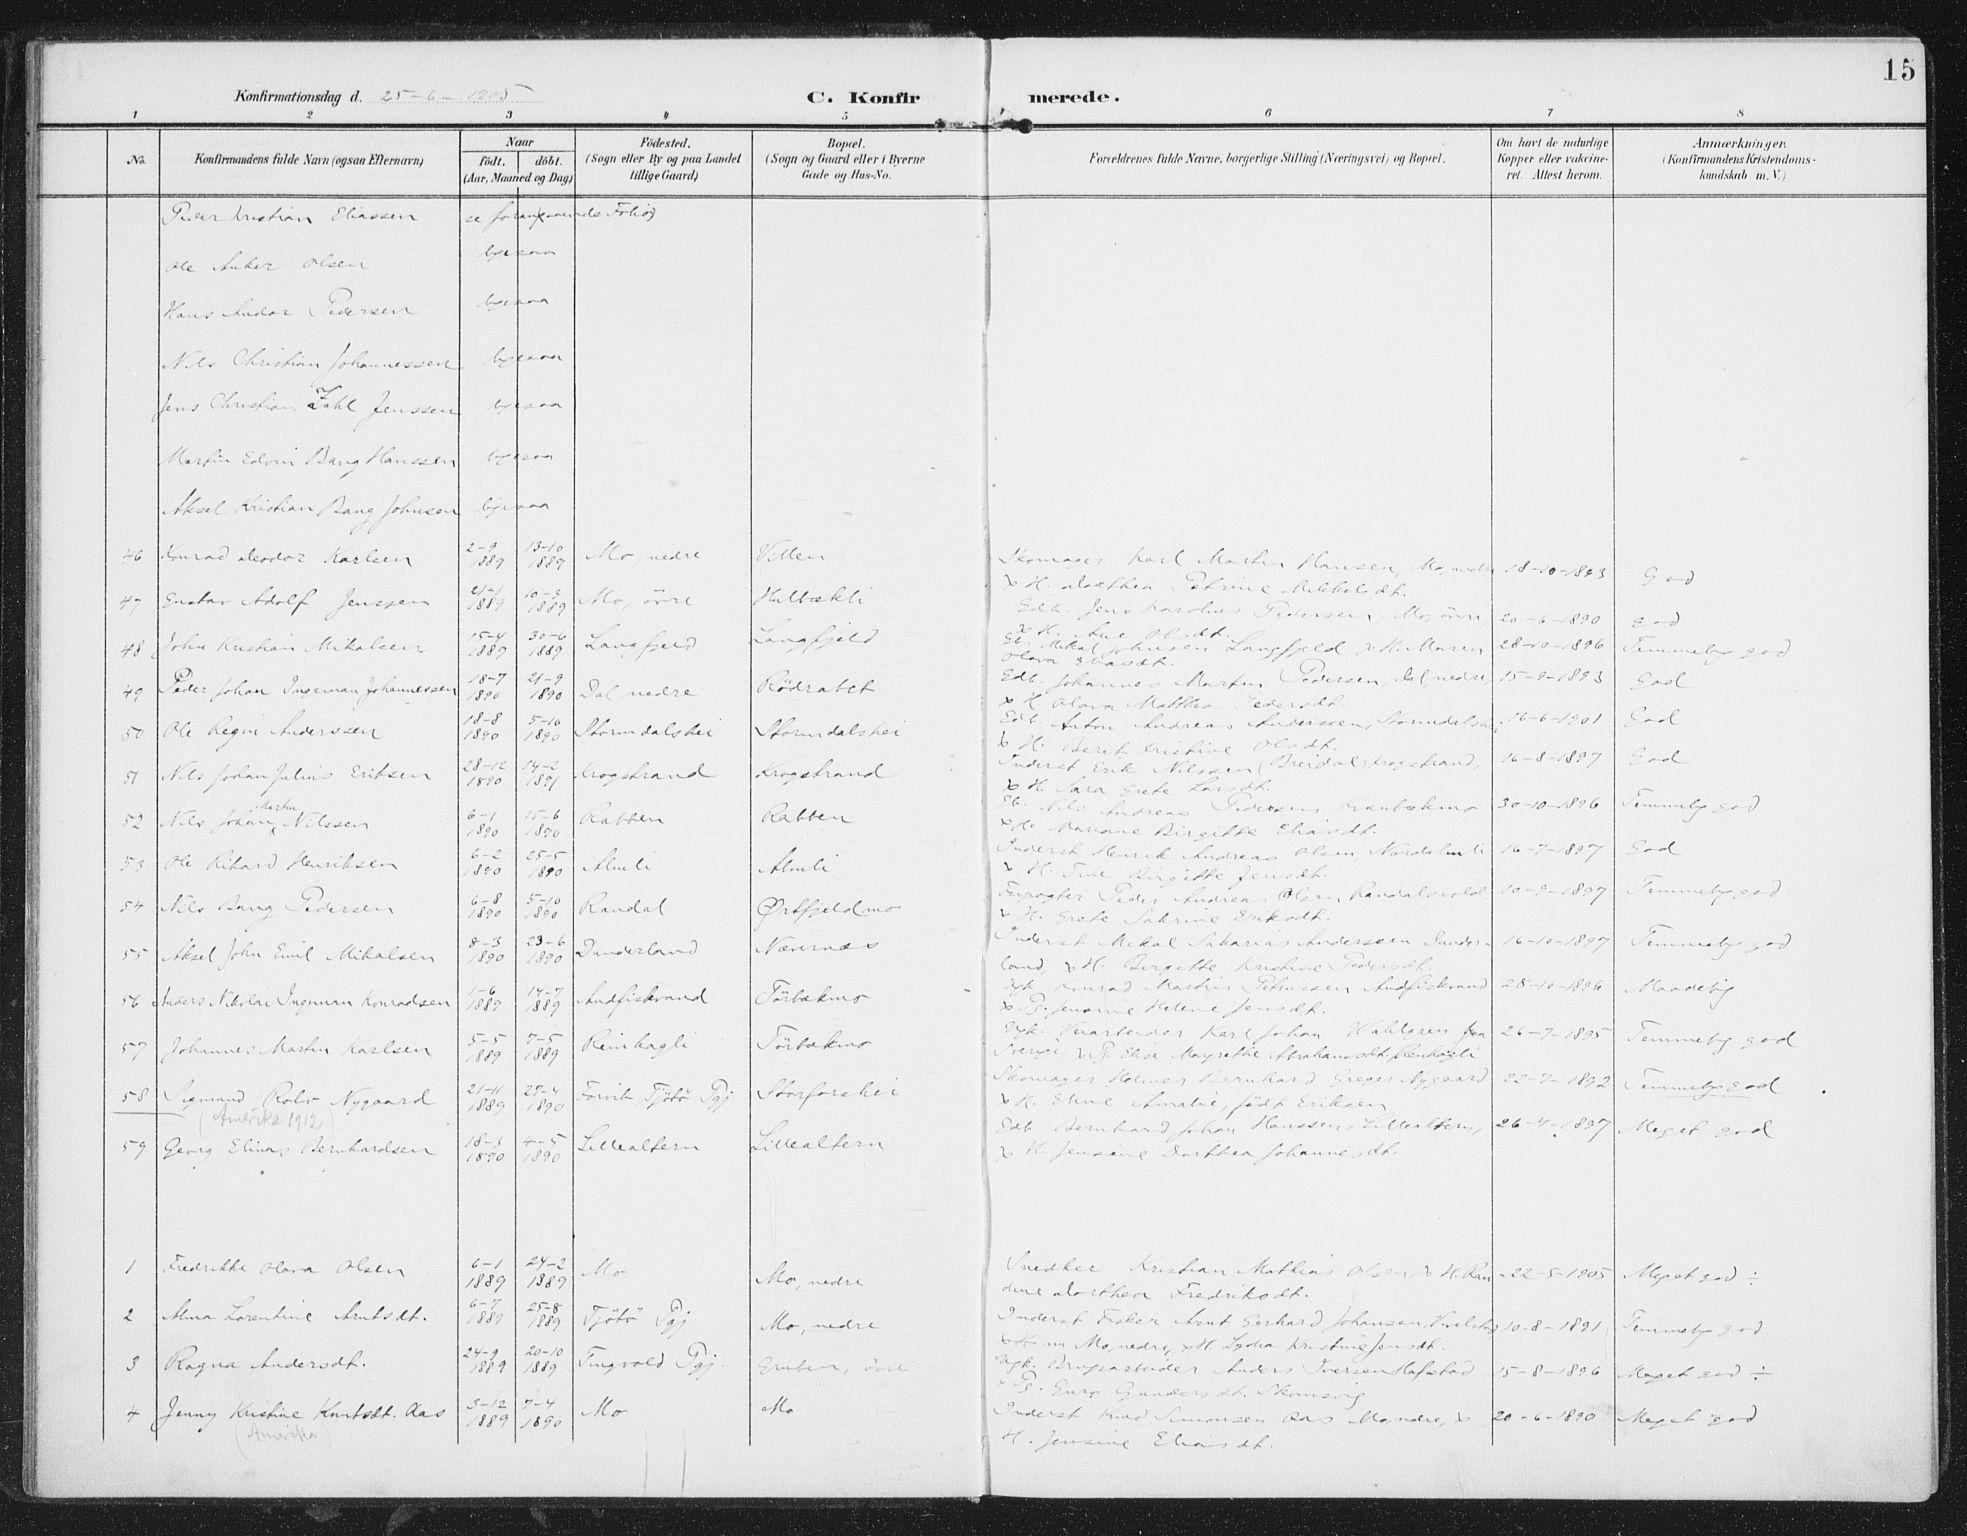 15
Konfirmationsdag d. 25-6-1905 C. Konfirmerede.
1 2 3 4 5 6 7 8
No. Konfirmandens fulde Navn (ogsaa Efternavn) Naar født. døbt. (Aar, Maaned og Dag) Födested. (Sogn eller By og paa Landet tillige Gaard) Bopæl. (Sogn og Gaard eller i Byerne Gade og Hus-No. Forældrenes fulde Navne, borgerlige Stilling (Næringsvei) og Bopæl. Om havt de naturlige Kopper eller vakcineret. Attest herom. Anmærkninger. (Konfirmandens Kristendomskundskab m. V.)
Peder Kristian Eliassen se foregaaende Folio
Ole Anker Olsen ligesaa
Hans Andor Pedersen ligesaa
Nils Christian Johannessen ligesaa
Jens Christian Zahl Jenssen ligesaa
Martin Edvin Bang Hanssen ligesaa
Aksel Kristian Bang Johnsen ligesaa
46 Konrad Teodor Karlsen 2-9 1889 13-10 1889 Mo, nedre Vellen Skomager Karl Martin Hansen, Mo, nedre 18-10-1893 God
x H. Dorthea Petrine Mikkelsdt.
47 Gustav Adolf Jenssen 21-1 1889 10-3 1889 Mo, övre Hulbækli Gdb. Jens Karolius Pedersen, Mo, övre, 20-6-1890 god
x H. Ane Olsdt.
48 John Kristian Mikalsen 15-4 1889 30-6 1889 Langfjeld Langfjeld Gb. Mikal Johnsen Langfjeld x H. Maren 28-10-1896 Temmelig god
Olava Eliasdt.
49 Peder Johan Ingeman Johannessen 18-7 1890 21-9 1890 Dal, nedre Rödrabet Gdb. Johannes Martin Pedersen, Dal, nedre, 15-9-1893 God
x H Olava Matthea Pedersdt.
50 Ole Regin Anderssen 18-8 1890 5-10 1890 Stormdalshei Stormdalshei Gdb. Anton Andreas Anderssen, Stormdalshei 16-6-1901 God
x H. Beret Kristine Olsdt.
51 Nils Johan Julius Eriksen 28-12 1890 14-2 1891 Krogstrand Krogstrand Inderst Erik Nilssen (Bredal) Krogstrand, 16-8-1897 God
x H. Sara Grete Larsdt.
52 Nils Johan Martin Nilssen 6-1 1890 15-6 1890 Rabben Rabben Gb. Nils Andreas Pedersen 30-10-1896 Temmelig god
x H. Mariane Birgitte Eliasdt.
53 Ole Rikard Henriksen 6-2 1890 25-5 1890 Almli Almli Inderst Henrik Andreas Olsen, Nordalmli 16-7-1897 God
x H. Tine Birgitte Jensdt.
54 Nils Bang Pedersen 6-8 1890 5-10 1890 Randal Ørtfjeldmo Forpagter Peder Andreas Olsen Randalsvold 10-9-1897 Temmelig god
x H. Grete Sabrine Eriksdt.
55 Aksel John Emil Mikalsen 8-3 1890 23-6 1890 Dunderland Nævernæs Inderst Mikal Sakarias Anderssen Dunder- 16-10-1897 Temmelig god
land, x H. Birgitte Kristine Pedersdt.
56 Anders Nikolai Ingeman Konradsen 1-6 1889 14-7 1889 Andfiskvand Törbækmo Ugk. Konrad Martin Petrussen Andfiskvand 28-10-1896 Maadelig
x Pg. Jensine Helene Jensdt.
57 Johannes Martin Karlsen 5-5 1889 7-5 1889 Reinhagli Törbækmo Ugk. Karl Johan Wahlgren fra 26-7-1895 Temmelig god
Sverige x Pg. Elise Margrethe Abrahamsdt, Reinhagli
58 Sigmund Rolv Nygaard 21-11 1889 25-4 1890 Forvik Tjötö Pgj Storforshei Skomager Holmer Bernhard Greger Nygaard 22-7-1892 Temmelig god
(Amerika 1912) x H. Eline Amalie, født Eriksen
59 Georg Elinas Bernhardsen 18-3 1890 4-5 1890 Lillealtern Lillealtern Gdb Bernhard Johan Hanssen, Lillealtern, 26-4-1897 Meget god
x H. Jensine Dorthea Johannesdt.
1 Fredrikke Olava Olsen 6-1 1889 24-2 1889 Mo Mo, nedre Snedker Kristian Mathias Olsen, x H. Ran- 22-5-1905 Meget god ÷
dine Dorthea Fredriksdt.
2 Alma Lorentine Arntsdt. 6-7 1889 25-8 1889 Tjötö Pgj Mo, nedre Inderst Fisker Arnt Gerhard Johansen, 10-8-1891 Temmelig god
nu Mo, nedre, x H. Lydia Kristine Jensdt.
3 Ragna Andersdt. 24-9 1889 20-10 1889 Tingvold Pgj. Gruben, övre Ugk. Brugsarbeider Anders Iversen Hafstad 15-8-1896 Meget god ÷
x Pg. Guro Gundersdt. Skomsvig
4 Jenny Kristine Knutsdt. Aas 3-12 1889 7-4 1890 Mo Mo Inderst Knud Simonsen Aas Mo, nedre, x 20-6-1890 Meget god
(Amerika) H. Jensine Eliasdt.